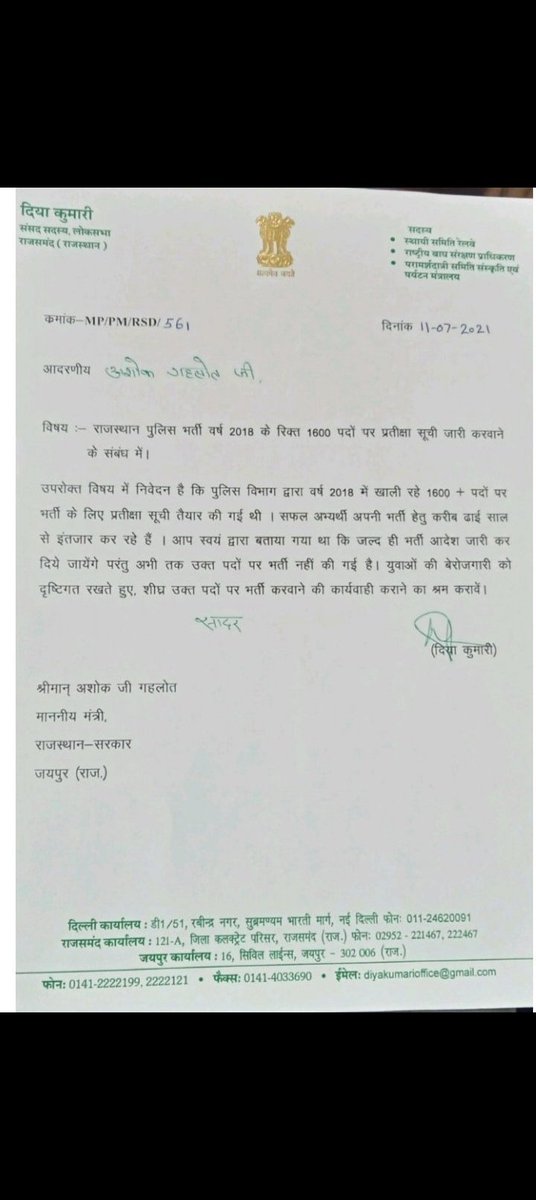 दिया कुमारी
संसद सदस्य, लोकसभा
राजसमंद ( राजस्थान )
सत्यमेव जयते
सदस्य
• स्थायी समिति रेलवे
• राष्ट्रीय बाघ संरक्षण प्राधिकरण
• परामर्शदात्री समिति संस्कृति एवं
पर्यटन मंत्रालय
कमांक–MP/PM/RSD/561
दिनांक 11-07-2021
आदरणीय अशोक गहलोत जी,
विषय :– राजस्थान पुलिस भर्ती वर्ष 2018 के रिक्त 1600 पदों पर प्रतीक्षा सूची जारी करवाने
के संबंध में।
उपरोक्त विषय में निवेदन है कि पुलिस विभाग द्वारा वर्ष 2018 में खाली रहे 1600 + पदों पर
भर्ती के लिए प्रतीक्षा सूची तैयार की गई थी । सफल अभ्यर्थी अपनी भर्ती हेतु करीब ढाई साल
से इंतजार कर रहे हैं । आप स्वयं द्वारा बताया गया था कि जल्द ही भर्ती आदेश जारी कर
दिये जायेंगे परंतु अभी तक उक्त पदों पर भर्ती नहीं की गई है। युवाओं की बेरोजगारी को
दृष्टिगत रखते हुए, शीघ्र उक्त पदों पर भर्ती करवाने की कार्यवाही कराने का श्रम करावें।
सादर
(दिया कुमारी)
श्रीमान् अशोक जी गहलोत
माननीय मंत्री,
राजस्थान–सरकार
जयपुर (राज.)
दिल्ली कार्यालय : डी1/51, रबीन्द्र नगर, सुब्रमण्यम भारती मार्ग, नई दिल्ली फोनः 011-24620091
राजसमंद कार्यालय : 121-A, जिला कलक्ट्रेट परिसर, राजसमंद (राज.) फोनः 02952 - 221467, 222467
जयपुर कार्यालय : 16, सिविल लाईन्स, जयपुर - 302 006 (राज.)
फोनः 0141-2222199, 2222121 • फैक्सः 0141-4033690 • ईमेलः diyakumarioffice@gmail.com